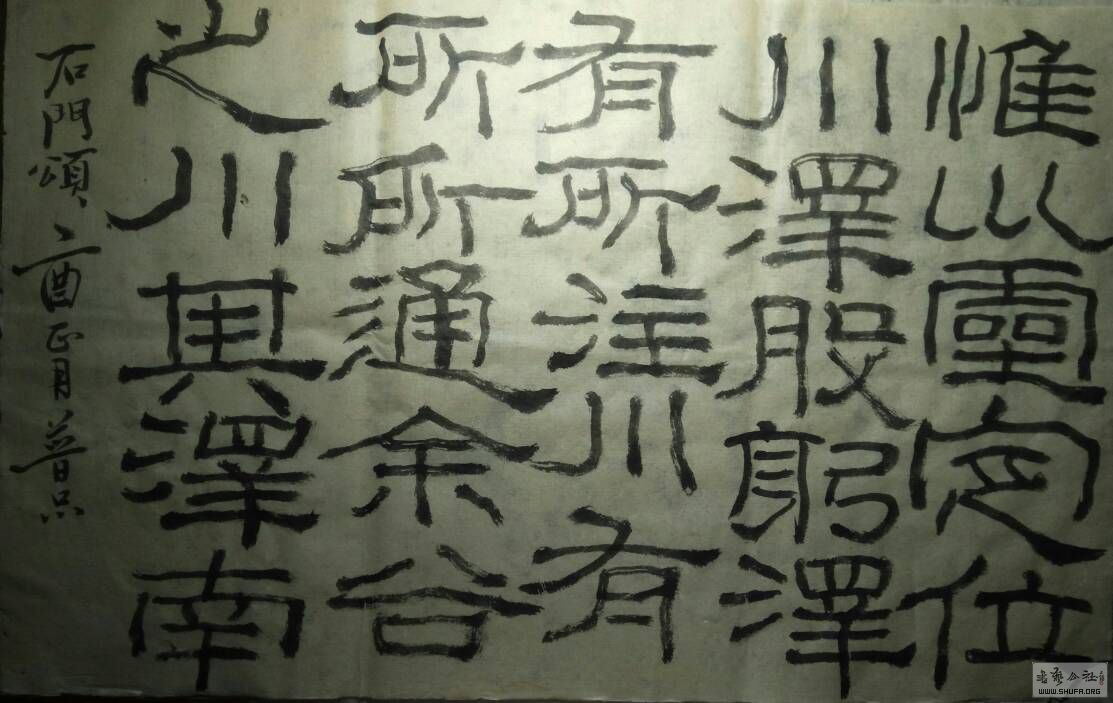 惟巛靈定位
川澤股躬澤
有所注川有
所所通余谷
之川其澤南
石門頌 丁酉正月普
书艺公社
WWW.SHUFA.ORG